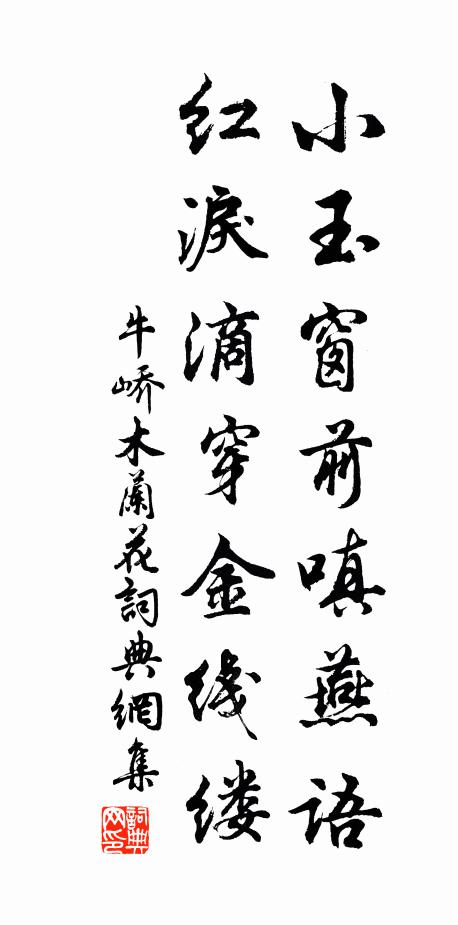 小玉窗前嗔燕语
红泪滴穿金线缕
牛峤木蘭花詞典網集
詞典网印